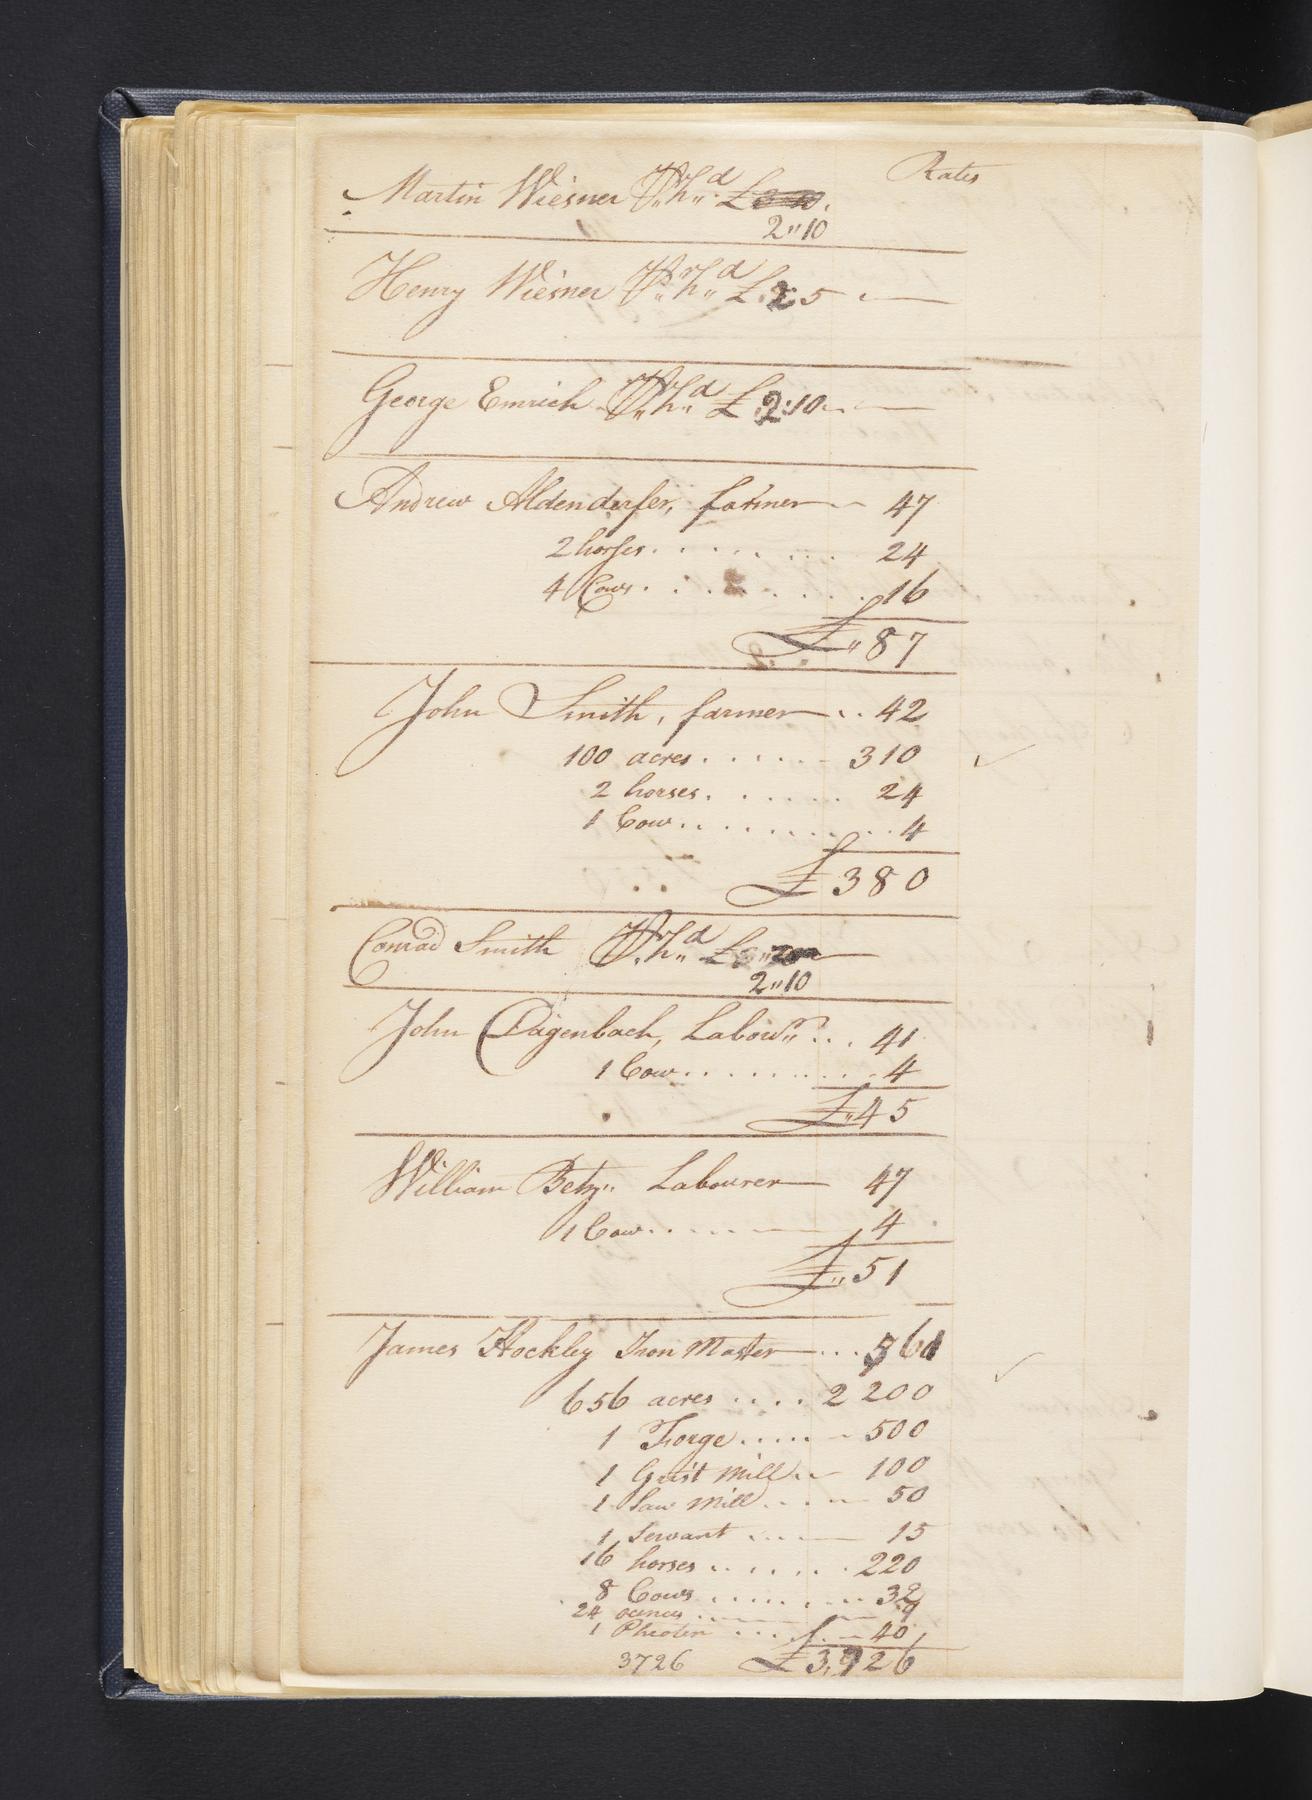 Rates
Martin Wiesner W,,h,,d £
2,,10
Henry Wiesner W,,h,,d £.25
George Emrich W,,h,,d £.2.10
Andrew Aldenderfer, farmer 47
2 horses 24
4 Cows 16
£,,87
John Smith, farmer 42
100 acres 310
2 horses 24
1 Cow 4
£380
Conrad Smith W,,h,,d £
2,,10
John Dagenbach, Labour 41
1 Cow 4
£,,45
William Betz,, Labourer 47
1 Cow 4
£,,51
James Hockley Iron Master 561
656 acres 2200
1 Forge 500
1 Grist Mill 100
1 Saw Mill 50
1 Servant 15
16 horses 220
8 Cows 32
24 ounces 9
1 Pheoten 40
3726 £3,926